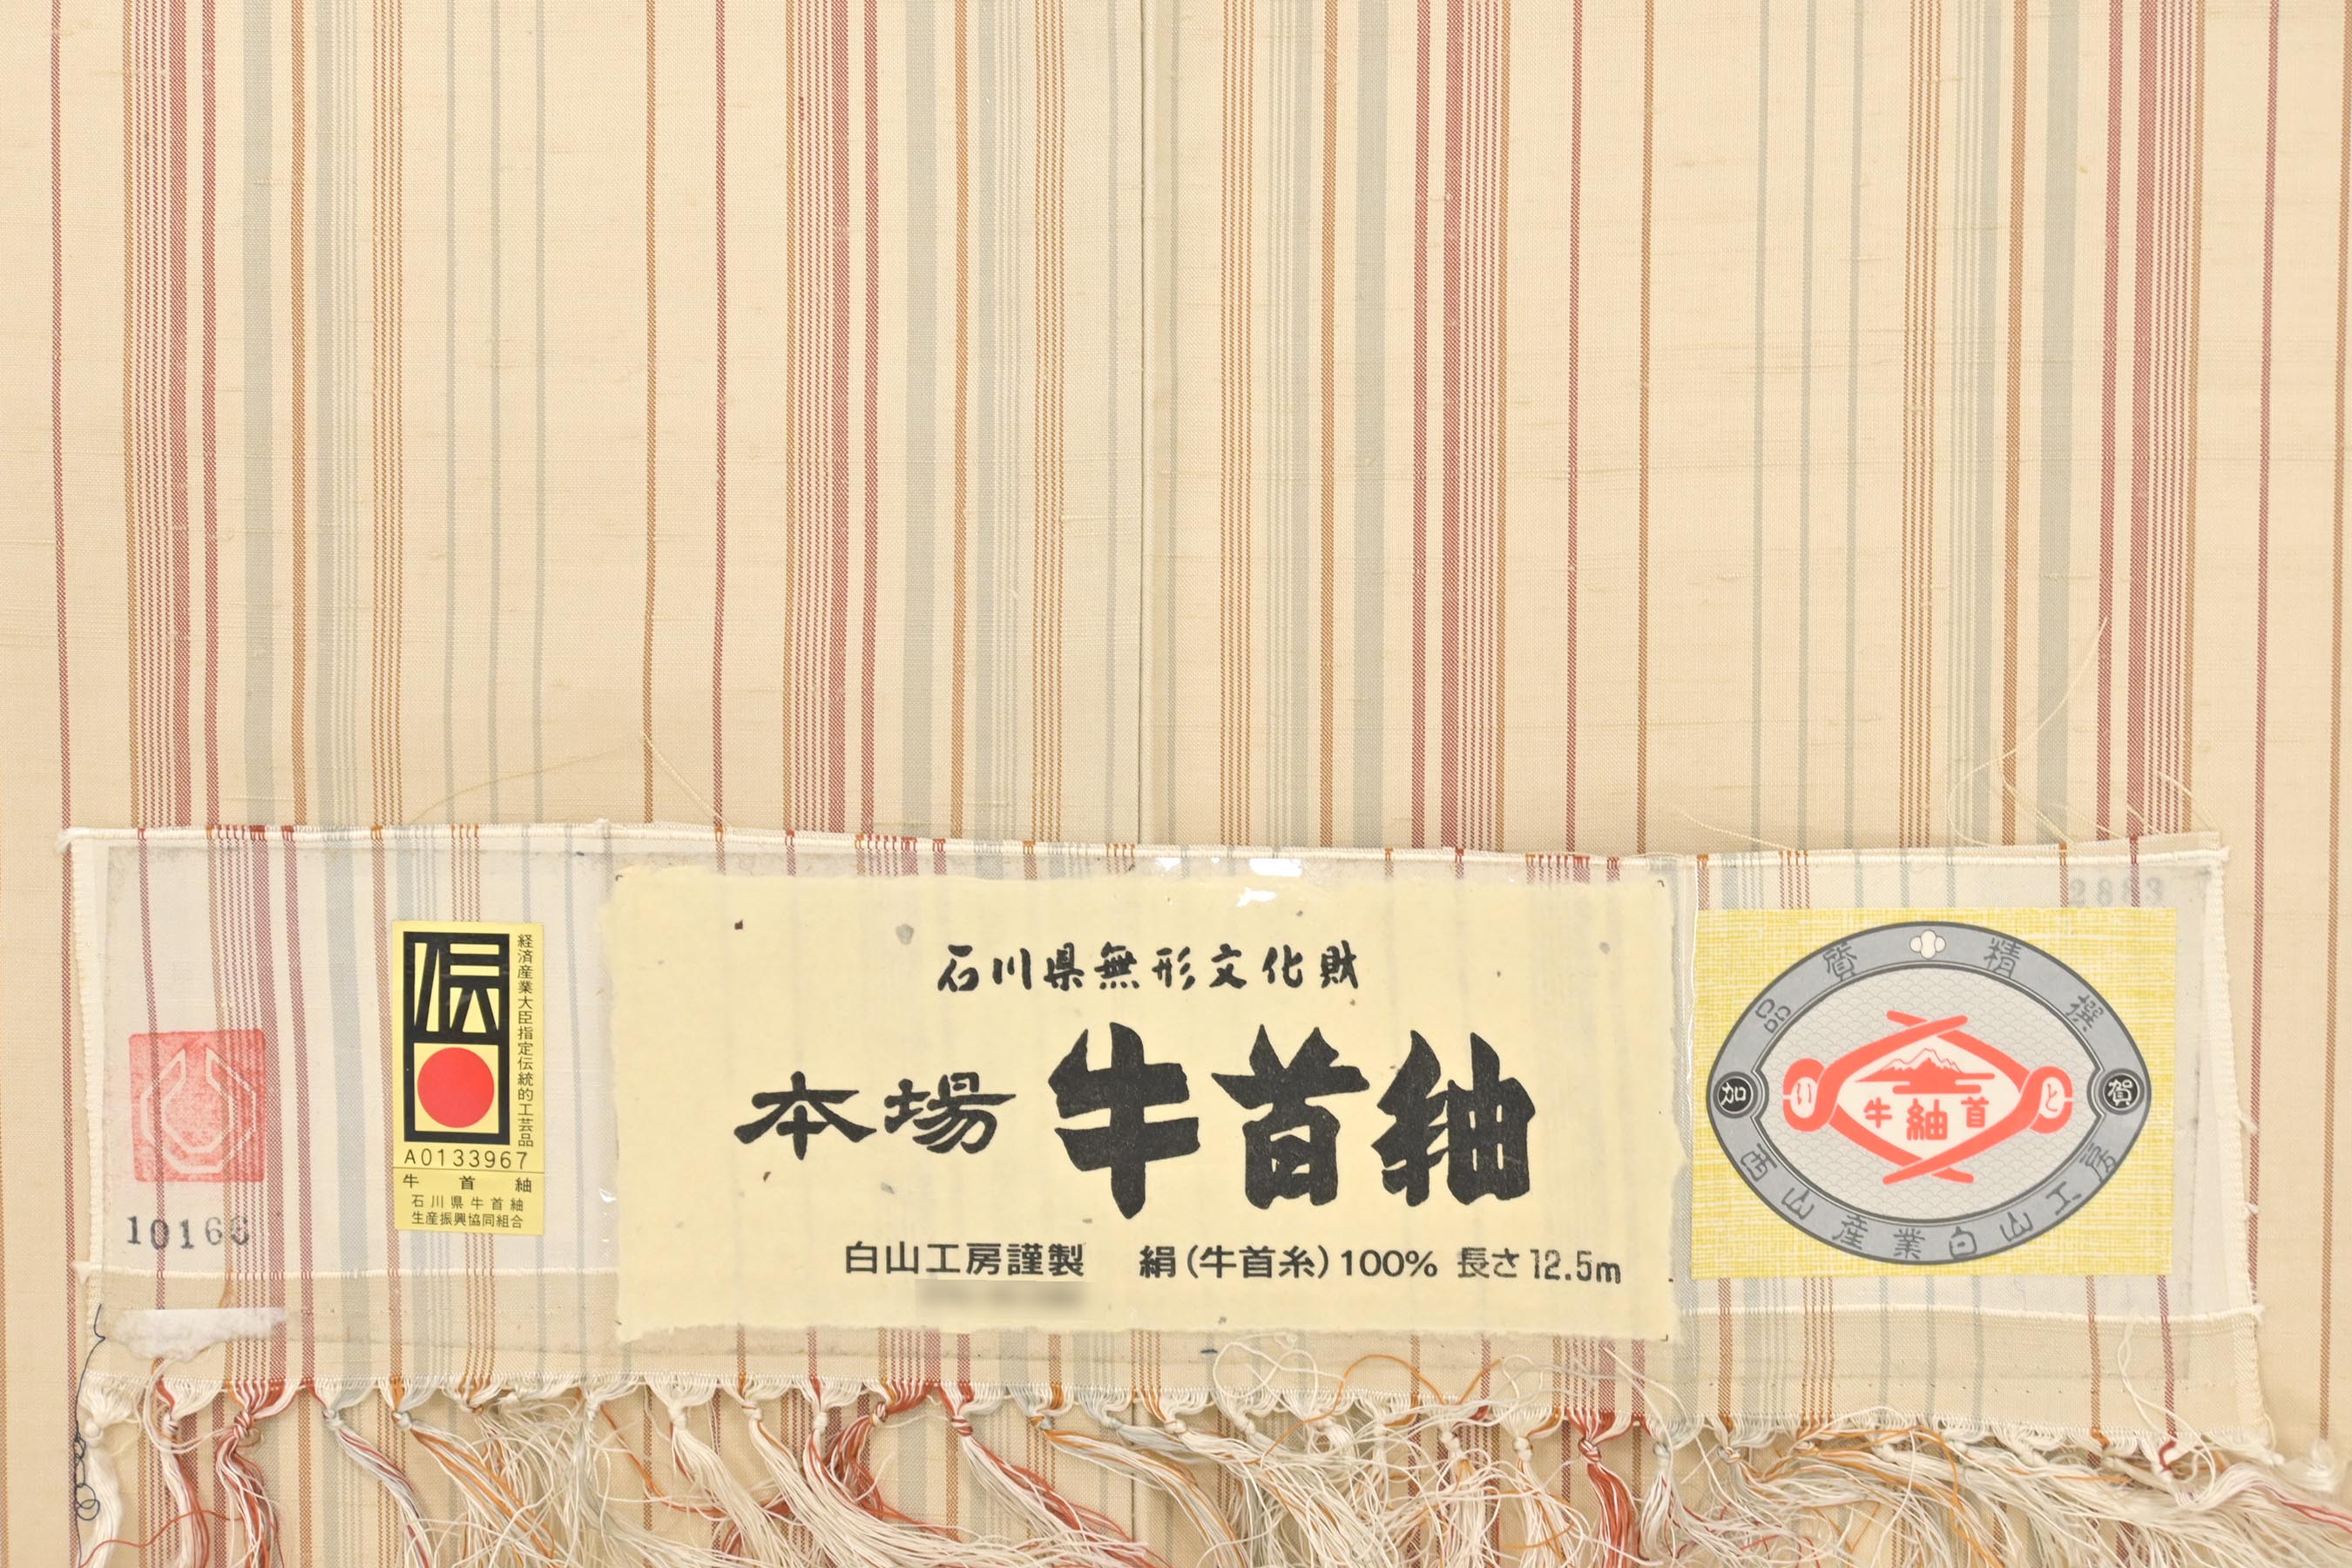 10168
伝
経済産業大臣指定伝統的工芸品
A0133967
牛首紬
石川県牛首紬
生産振興協同組合
石川県無形文化財
本場 牛首紬
白山工房謹製 絹(牛首糸)100% 長さ12.5m
2883
精撰
品質
加賀
いと
牛首紬
西山産業白山工房